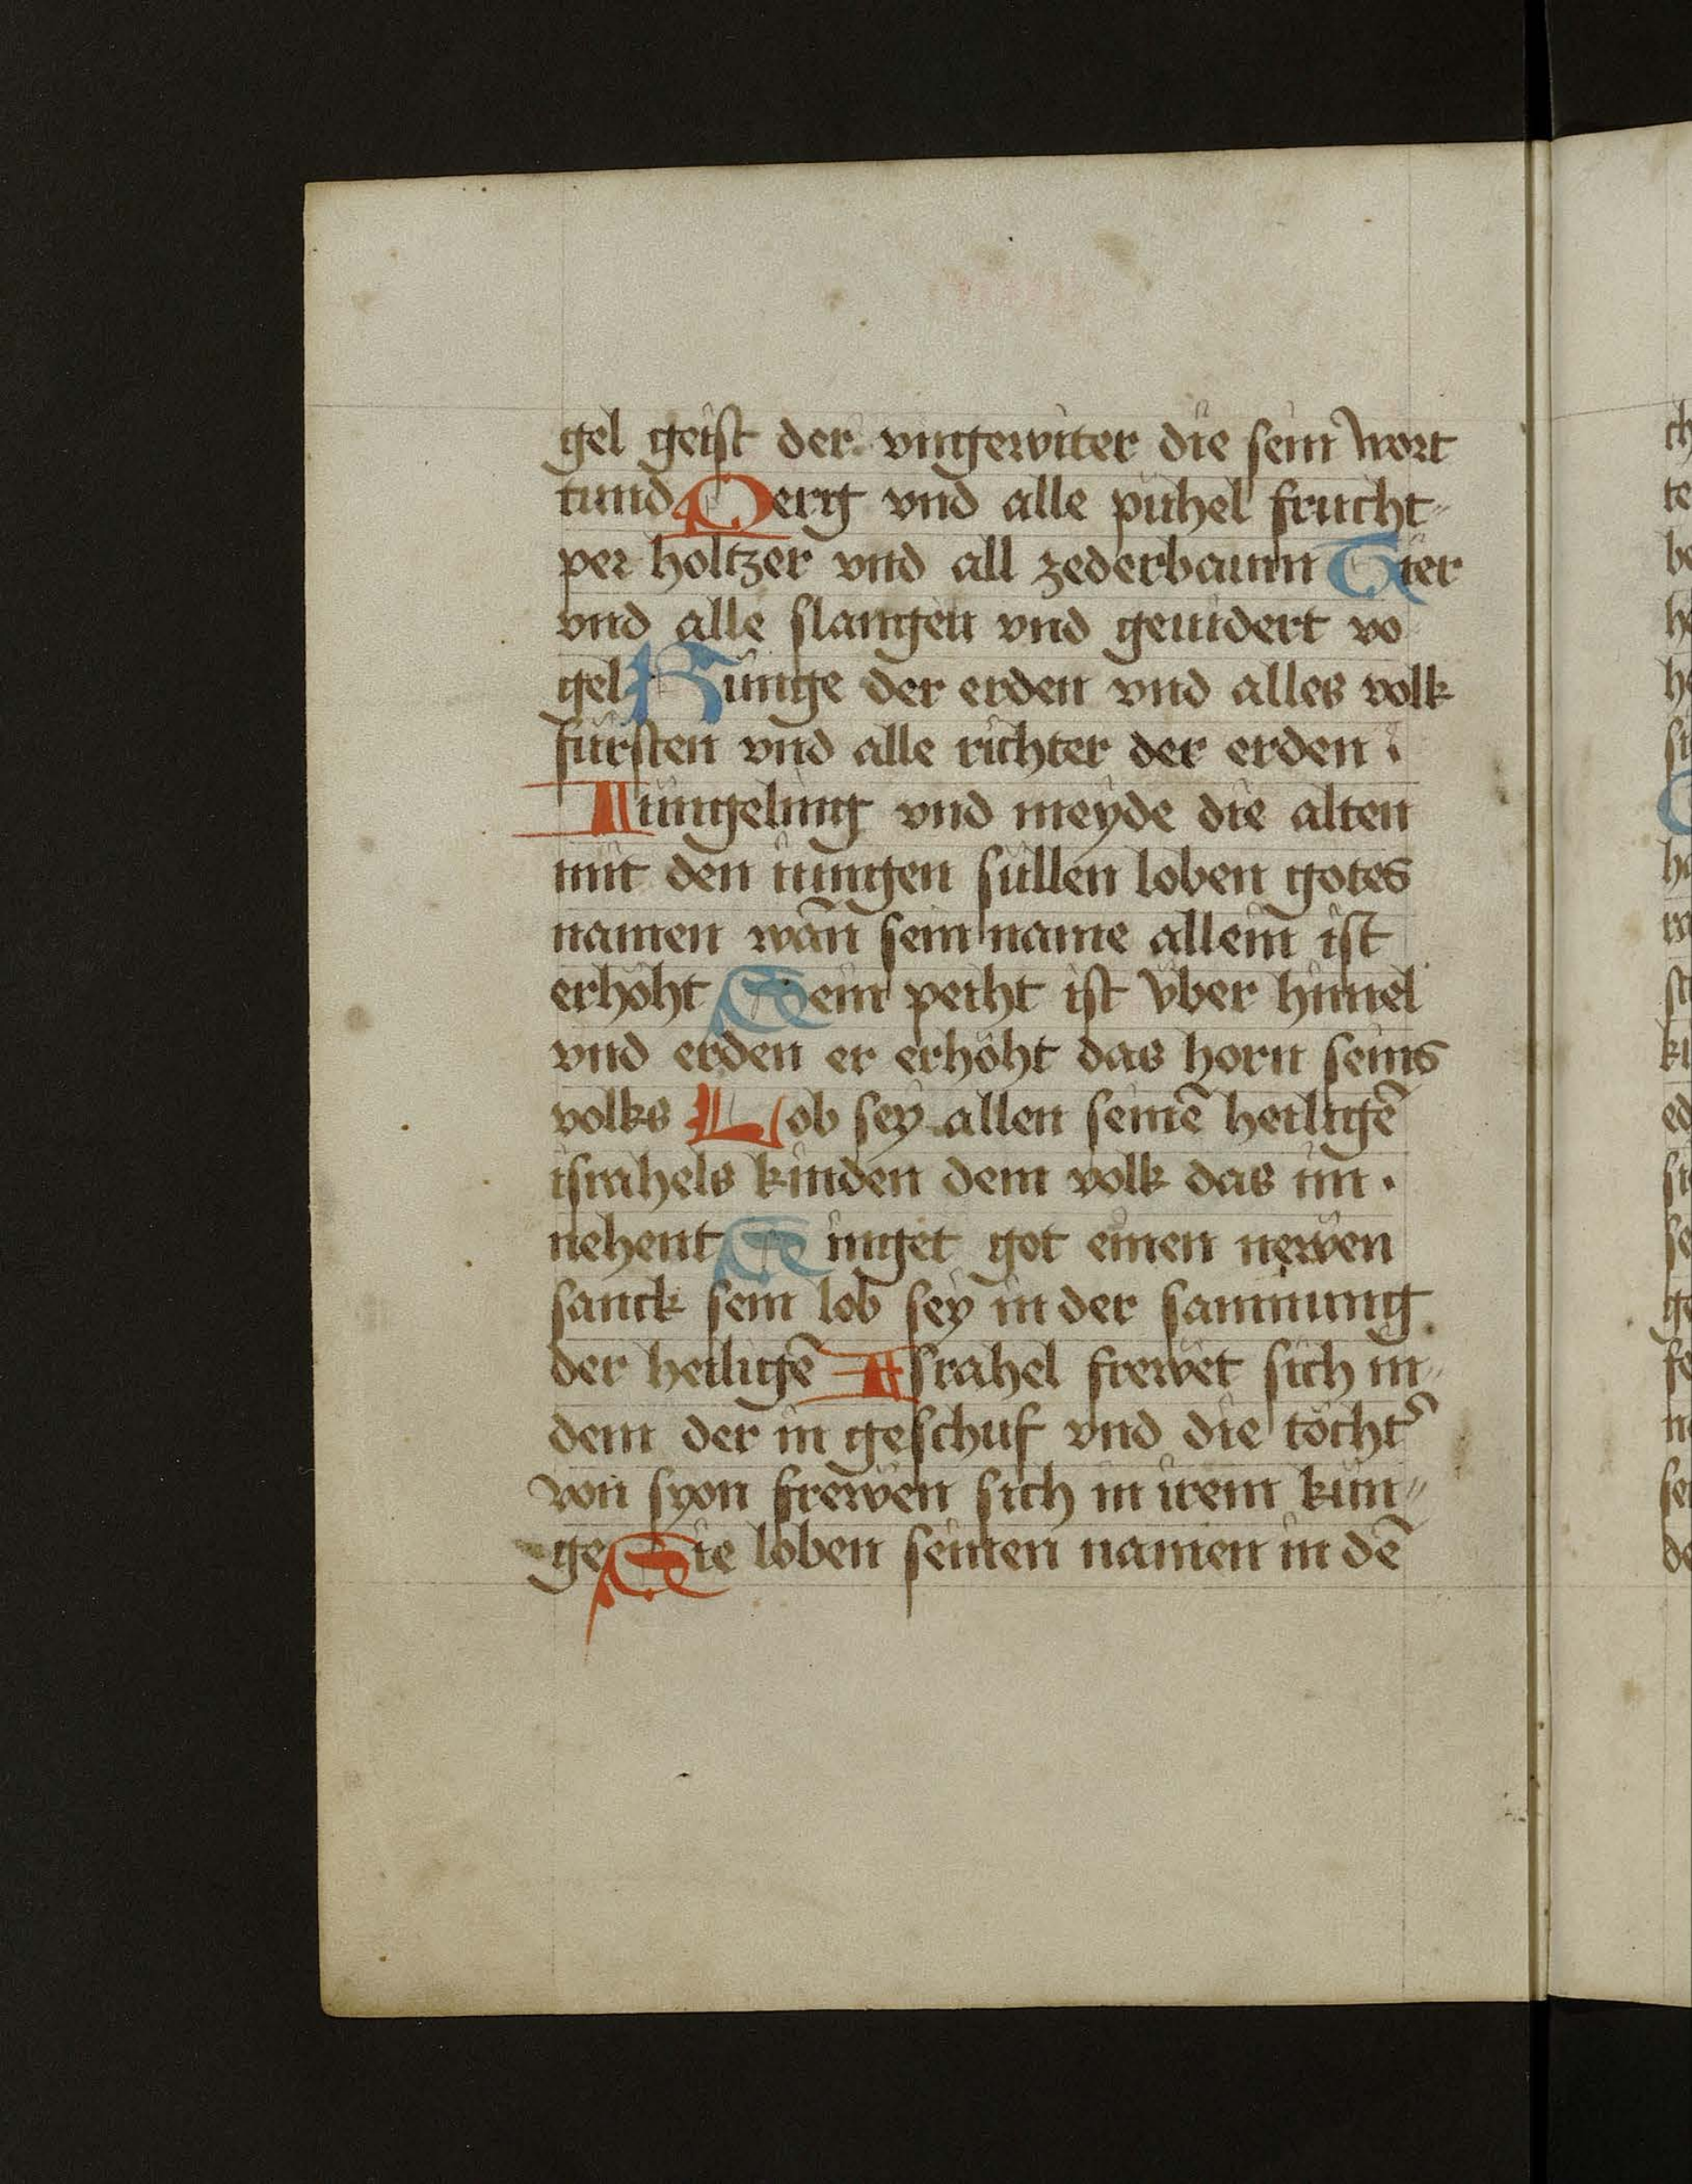 gel geist der vngewiter die sein wort
tund Perg vnd alle pühel frucht⸗
per holtzer vnd all zederbaum Tier
vnd alle slangen vnd geuidert vo
gel Künge der erden vnd alles volk
fürsten vnd alle richter der erden
Iüngeling vnd meyde die alten
mit den iungen süllen loben gotes
namen wañ sein name allein ist
erhöht Sein peiht ist vber himel
vnd erden er erhöht das horn seins
volks Lob sey allen seinē heiligē
israhels kinden dem volk das im ·
nehent Singet got einen newen
sanck sein lob sey in der samnung
der heiligē Israhel frewet sich in⸗
dem der in geschuf vnd die tocht᷑
von syon frewen sich in irem kün⸗
ge Sie loben seinen namen in dē